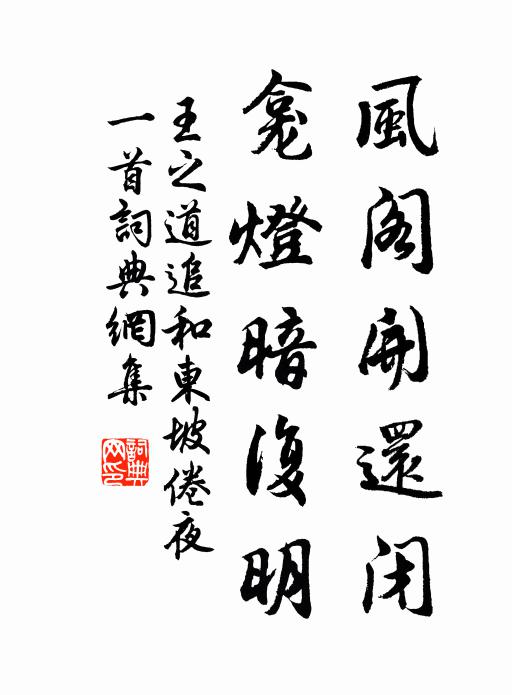 風閣開還閉
龕燈暗復明
王之道追和東坡倦夜
一首詞典網集
詞典
网印